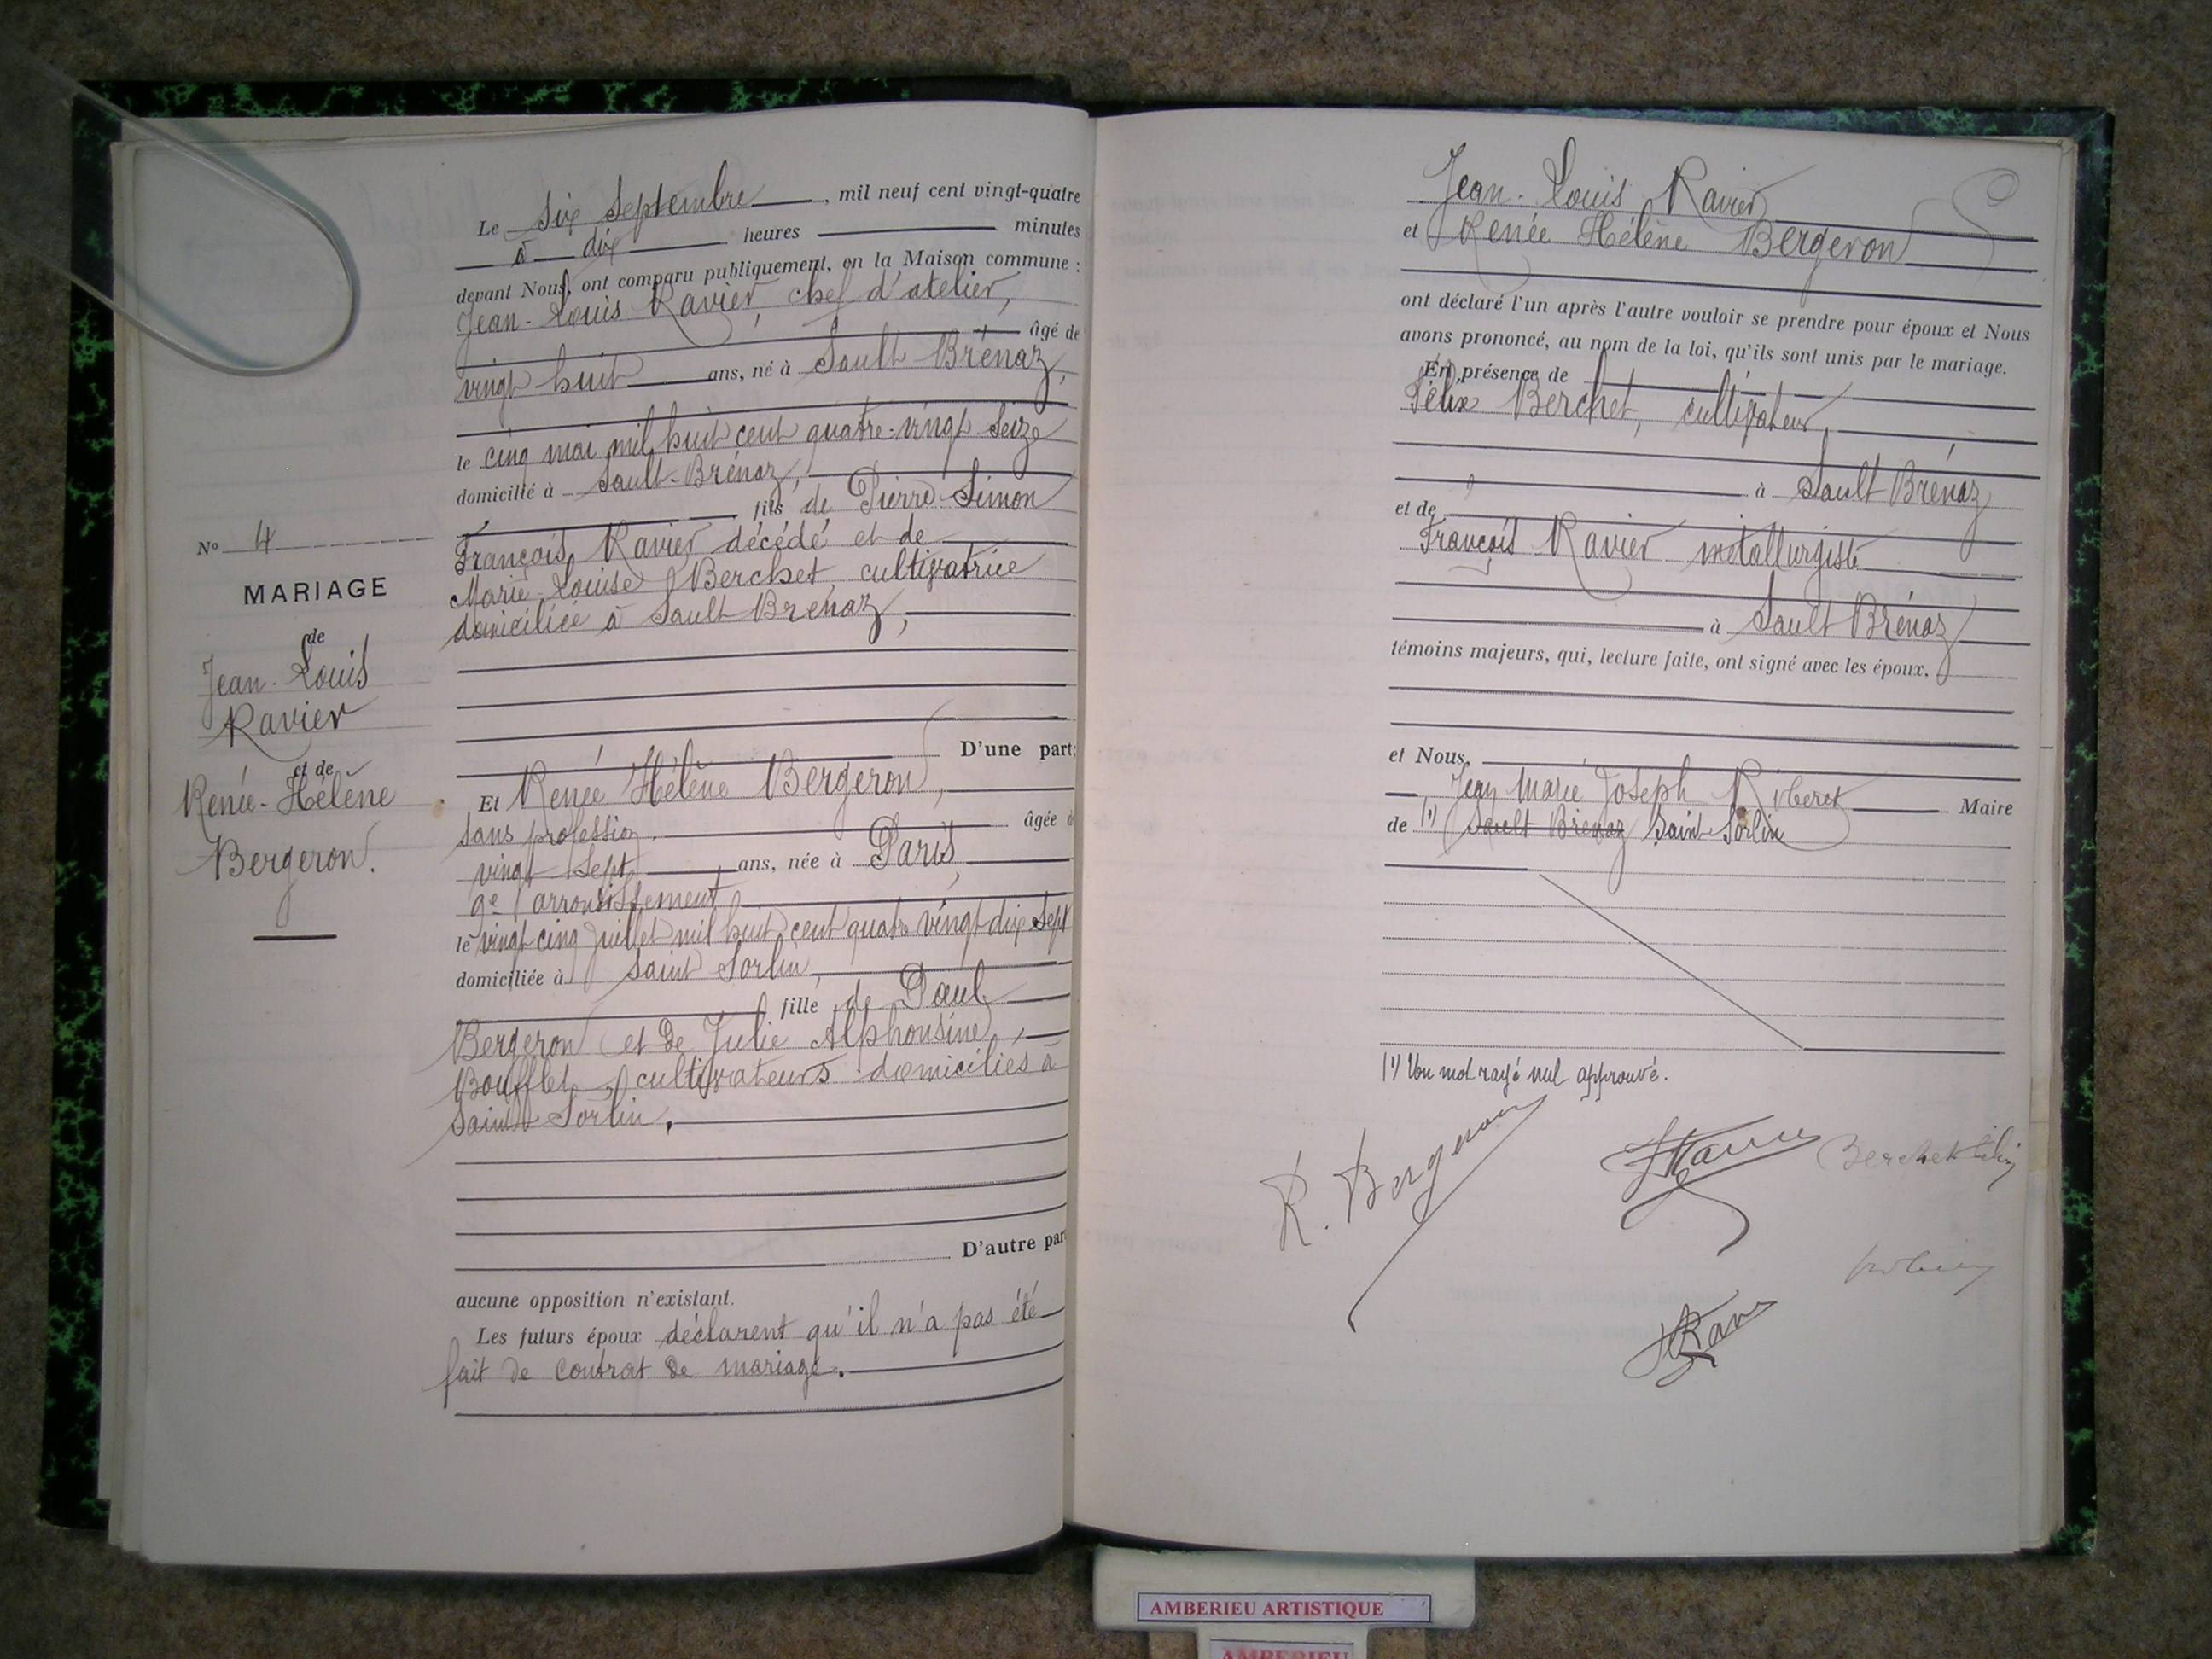 N° 4
MARIAGE
de
Jean-Louis
Ravier
et de
Renée-Hélène
Bergeron.
Le six Septembre, mil neuf cent vingt-quatre
à dix heures minutes
devant Nous, ont comparu publiquement, en la Maison commune :
Jean-Louis Ravier, chef d'atelier,
âgé de
vingt huit ans, né à Sault-Brénaz,
le cinq mai mil huit cent quatre-vingt seize
domicilié à Sault-Brénaz,
fils de Pierre-Simon
François Ravier décédé et de
Marie-Louise Berchet, cultivatrice
domiciliée à Sault Brénaz,
D'une part;
Et Renée Hélène Bergeron,
sans profession, âgée
vingt sept ans, née à Paris,
9e arrondissement,
le vingt cinq juillet mil huit cent quatre vingt dix sept
domiciliée à Saint Sorlin,
fille de Paul
Bergeron et de Julie Alphonsine
Boufflet, cultivateurs domiciliés à
Saint Sorlin.
D'autre par
aucune opposition n'existant.
Les futurs époux déclarent qu'il n'a pas été
fait de contrat de mariage.
Jean-Louis Ravier
et Renée Hélène Bergeron
ont déclaré l'un après l'autre vouloir se prendre pour époux et Nous
avons prononcé, au nom de la loi, qu'ils sont unis par le mariage.
En présence de
Félix Berchet, cultivateur,
à Sault Brénaz
et de
François Ravier métallurgiste
à Sault Brénaz
témoins majeurs, qui, lecture faite, ont signé avec les époux,
et Nous,
Jean Marie Joseph Maire
de (1) Sault Brénaz Saint-Sorlin
(1) Un mot rayé nul approuvé.
R. Bergeron
Berchet Félix
AMBERIEU ARTISTIQUE
AMBERIEU